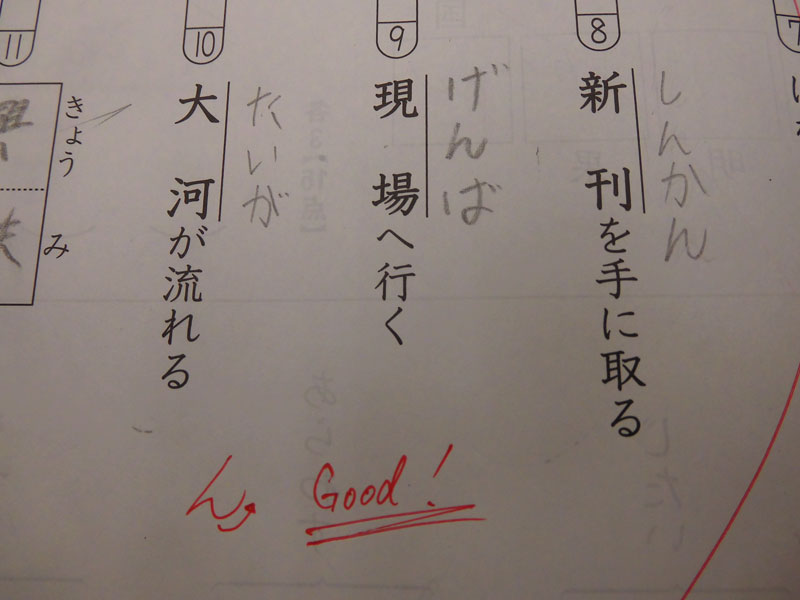 7
8
しんかん
新刊を手に取る
9
げんば
現場へ行く
10
たいが
大河が流れる
11
きょうみ
ん
Good!